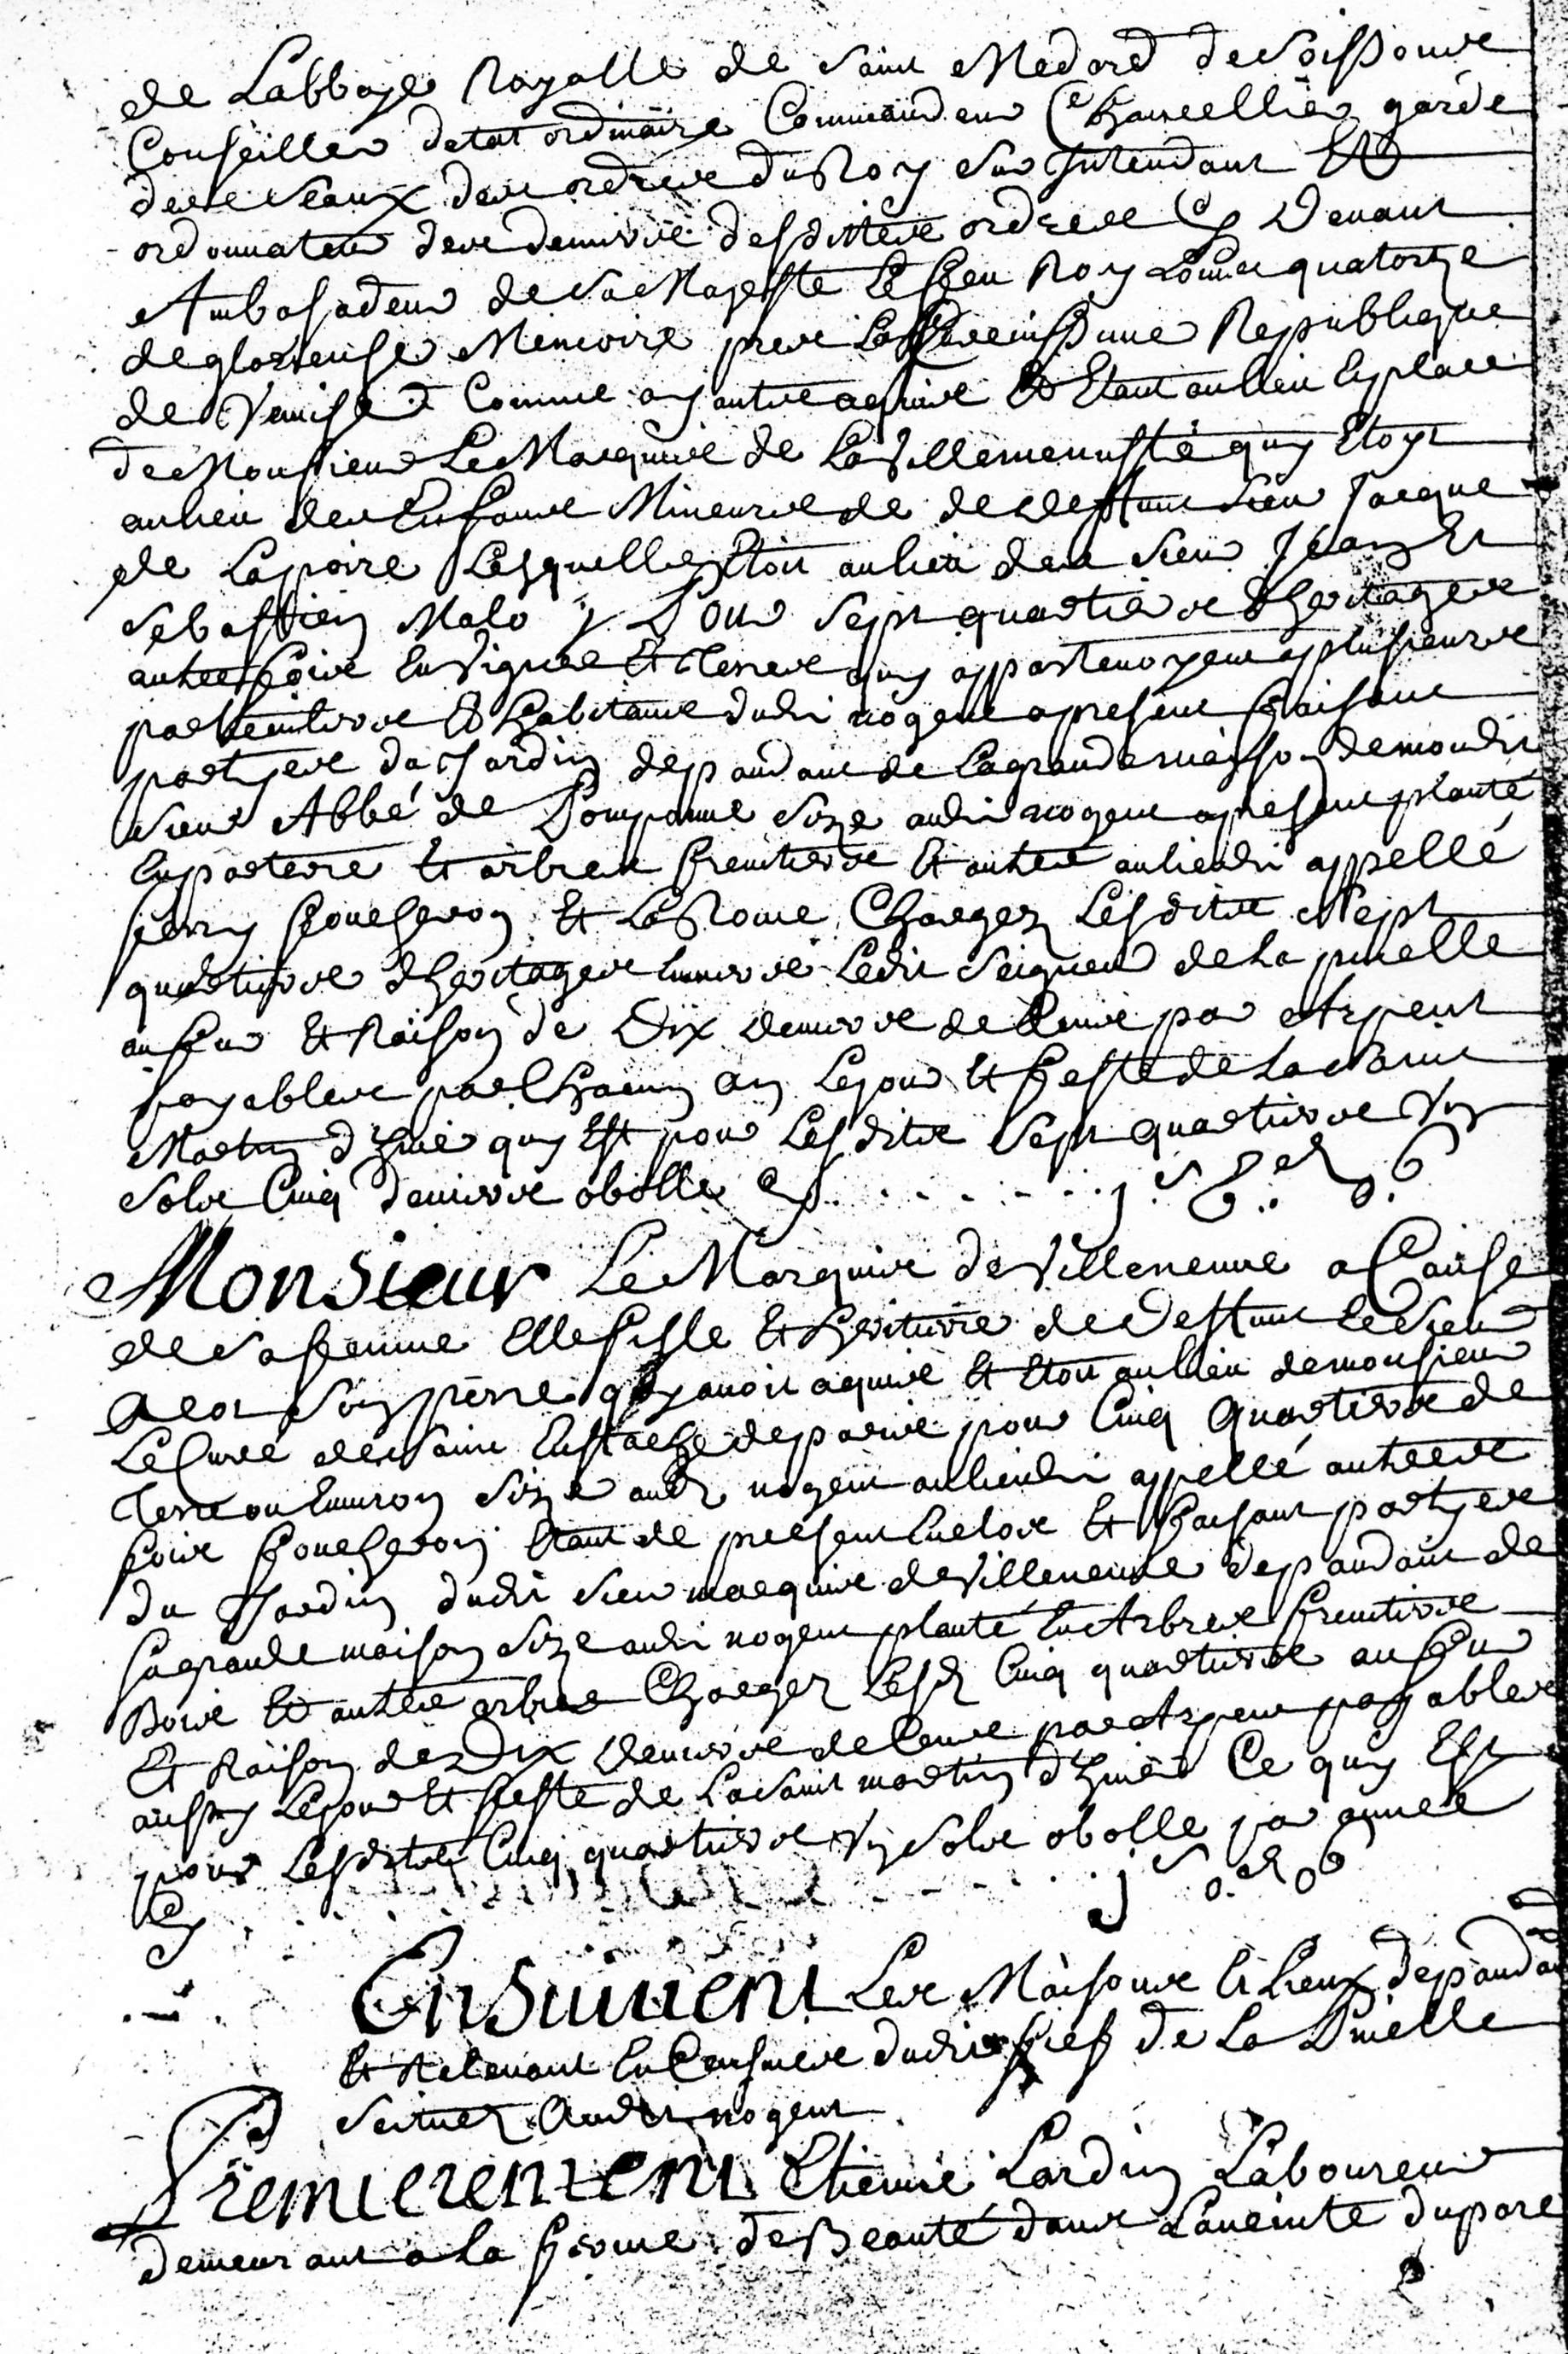 de Labbaye Royalle de Saint Medard de Soissons
Conseiller detat ordinaire Commandeur Chancellier garde
des Seaux des ordres du Roy Sur Intendant Et
ordonnateur des deniers desdittes ordres Cy Devant
Ambasadeur de Sa Majeste Le feu Roy Louis quatorze
de glorieuse Memoire pres La Serenissime Republique
de Venise Comme ayant aquis Et Etant au lieu En place
de Monsieur Le Marquis de La Villemenusté quy Etoyt
au lieu des Enfans Mineurs de deffunt Sieur Jacque
de Lapoire Lesquelles Etoit au lieu des Sieur Jean Et
Sebastien Malo Pour Sept quartiers d'heritages
autresfois En Vignes Et Terres quy appartenoyent a plusieurs
particuliers Et habitans dudit nogent a present faisant
partyes du Jardin depandant de La grande maison de mondit
Sieur Abbé de Pomponne Size audit nogent a present planté
En parterre Et arbres fruitiers Et autres au lieudit appellé
ferry foucheron Et La Chargez Lesdits Sept
quartiers d'heritages Envers Ledit Seigneur de La pinelle
au fur Et Raison de Dix deniers de Cens par Arpent
payables par Chacun an Le jour Et feste de La Saint
Martin d'hiver quy Est pour Lesdits Sept quartiers Un
Sols Cinq deniers obolle Cy . . . . . . . j s 5 . d o . 6
Monsieur Le Marquis de Villeneuve a Cause
de Sa femme Elle fille Et heritiere de Deffunt Le Sieur
Son perre quy avoit aquis Et Etoit au lieu de monsieur
Le Curé de Saint Eustache de paris pour Cinq Quartiers de
Terre ou Environ Size audit nogent au lieudit appellé autres
fois foucheron Etant de present Enclos Et faisant partyes
du Jardin dudit Sieur marquis de Villeneuve depandant de
Sa grande maison Size audit nogent planté En Arbres fruitiers
Bois Et autres arbres Chargez Lesd Cinq quartiers au fur
Et Raison de Dix Deniers de Cens par Arpent payables
aussy Le jour Et feste de La Saint martin d'hiver Ce quy Est
pour Lesdites Cinq quartiers Un Sols obolle par année
Cy . . . . . . . j s o . d o 6
Ensuivent Les Maisons Et Lieux depandan
Et Relevant En Censives dudit fief de La Pinelle
Scituez Audit nogent
Premierement Etienne Lardin Laboureur
demeurant a La ferme de Beauté dans Lanceinte du parc